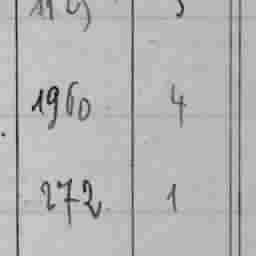 1960 4
272 1